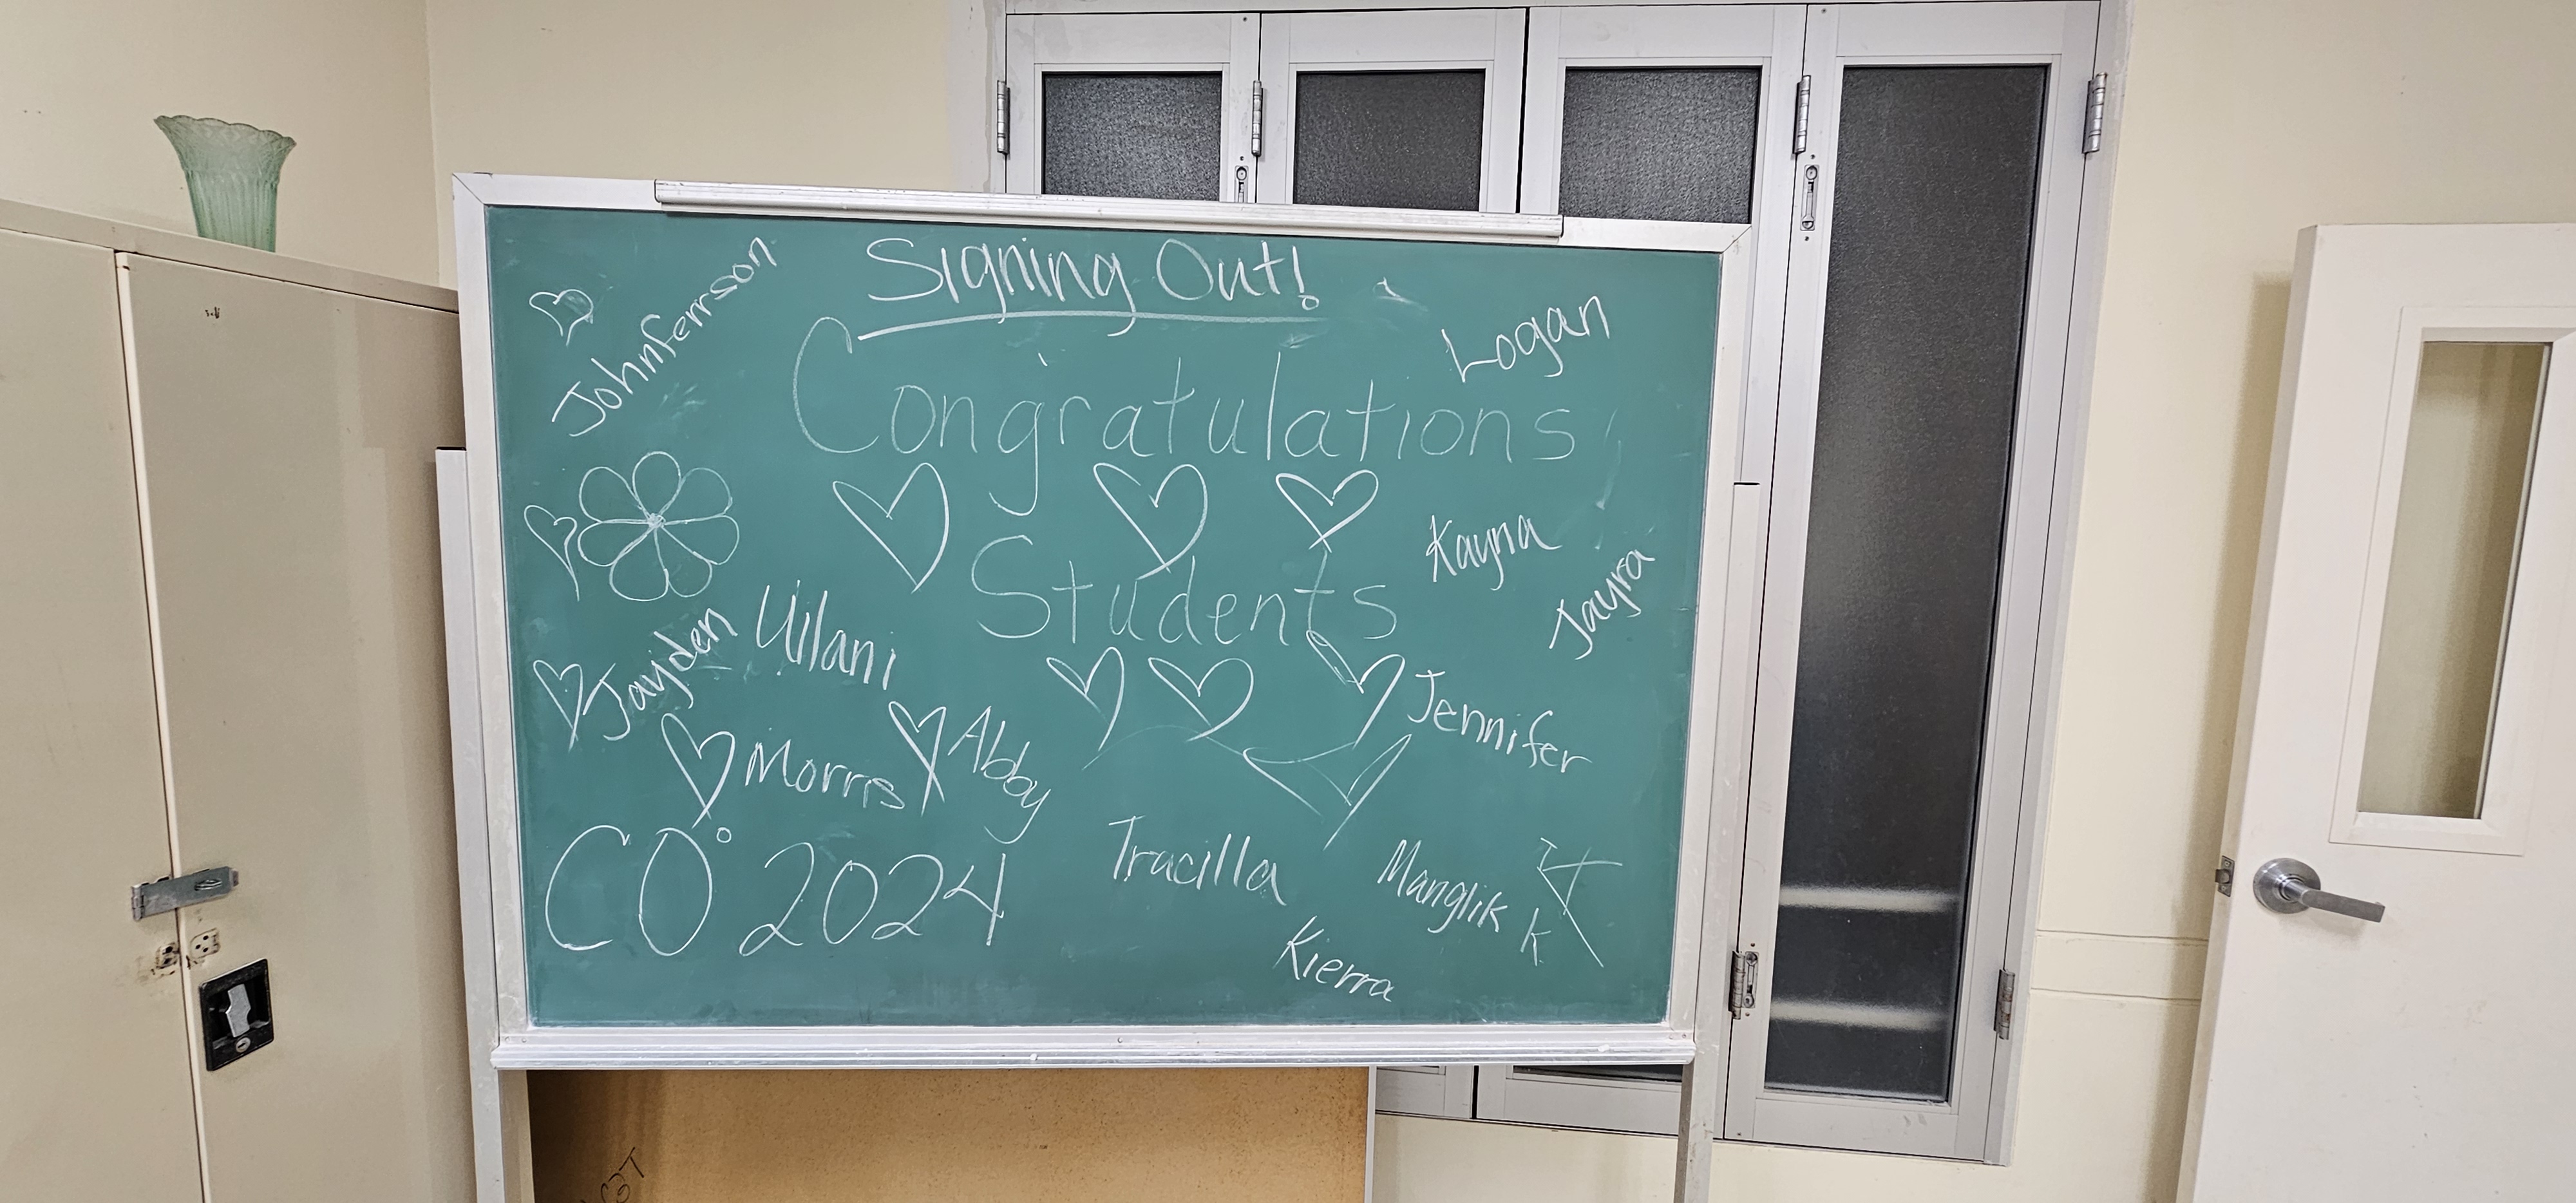 Signing Out!
Johnferrson
Logan
Congratulations
Kayna
Jayra
Students
Uilani
Jayden
Jennifer
Morris
Abby
CO° 2024
Tracilla
Manglik
K
Kierra